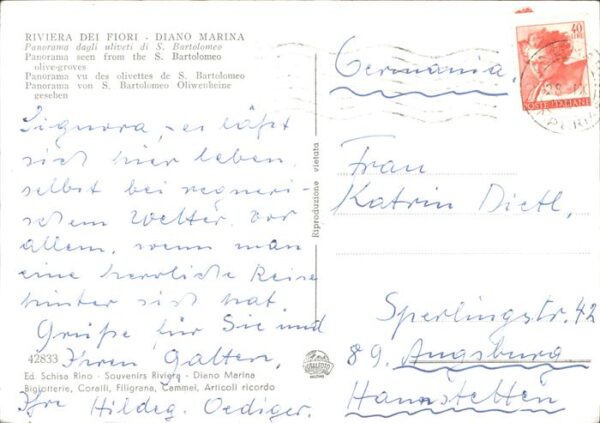 RIVIERA DEI FIORI - DIANO MARINA
Panorama dagli uliveti di S. Bartolomeo
Panorama seen from the S. Bartolomeo
olive-groves
Panorama vu des olivettes de S. Bartolomeo
Panorama von S. Bartolomeo Oliwenheine
gesehen
Signora, es läßt
sich hier leben,
selbst bei regneri-
schem Wetter. Vor
allem, wenn man
eine herrliche Reise
hinter sich hat.
Grüße für Sie und
Ihren Gatten,
Ihre Hildeg. Oediger.
42833
Ed. Schisa Rino - Souvenirs Riviera - Diano Marina
Bigiotterie, Coralli, Filigrana, Cammei, Articoli ricordo
Riproduzione vietata
40
LIRE
POSTE ITALIANE
Germania.
Frau
Katrin Dietl,
Sperlingstr. 42
89. Augsburg
Hannstetten